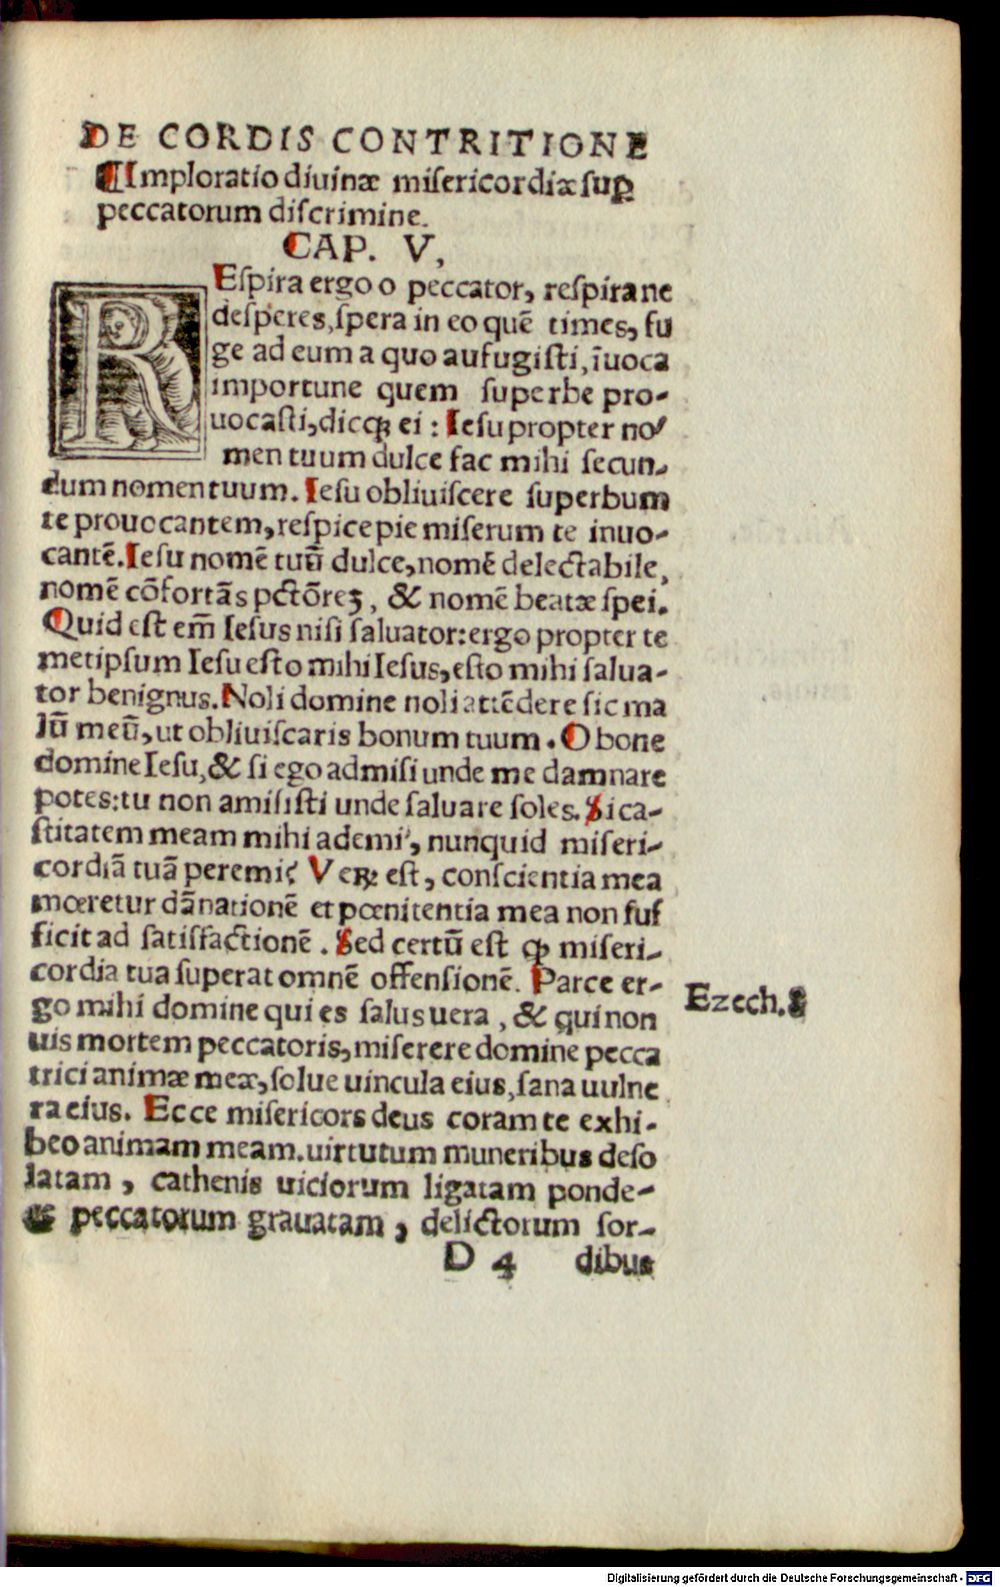 DE CORDIS CONTRITIONE
¶Imploratio diuinæ miſericordiæ ſuꝑ
peccatorum diſcrimine.
CAP. V,
REſpira ergo o peccator, reſpira ne
deſperes, ſpera in eo quē times, fu
ge ad eum a quo aufugiſti, īuoca
importune quem ſuperbe pro-
uocaſti, dicq; ei : Ieſu propter no
men tuum dulce fac mihi ſecun-
dum nomen tuum. Ieſu obliuiſcere ſuperbum
te prouocantem, reſpice pie miſerum te inuo-
cantē. Ieſu nomē tuū dulce, nomē delectabile,
nomē cōfortās pctōreʒ, & nomē beatæ ſpei.
Quid eſt em̄ Ieſus niſi ſaluator: ergo propter te
metipſum Ieſu eſto mihi Ieſus, eſto mihi ſalua-
tor benignus. Noli domine noli attēdere ſic ma
lū meū, ut obliuiſcaris bonum tuum. O bone
domine Ieſu, & ſi ego admiſi unde me damnare
potes: tu non amiſiſti unde ſaluare ſoles. Si ca-
ſtitatem meam mihi ademi, nunquid miſeri-
cordiā tuā peremi? Veꝝ eſt, conſcientia mea
mœretur dānationē et pœnitentia mea non ſuf
ficit ad ſatiſfactionē. Sed certū eſt ꝙ miſeri-
cordia tua ſuperat omnē offenſionē. Parce er-
go mihi domine qui es ſalus uera, & qui non
uis mortem peccatoris, miſerere domine pecca
trici animæ meæ, ſolue uincula eius, ſana uulne
ra eius. Ecce miſericors deus coram te exhi-
beo animam meam. uirtutum muneribus deſo
latam, cathenis uiciorum ligatam ponde-
peccatorum grauatam, delictorum ſor-
D 4 dibus
Ezech.
Digitalisierung gefördert durch die Deutsche Forschungsgemeinschaft - DFG